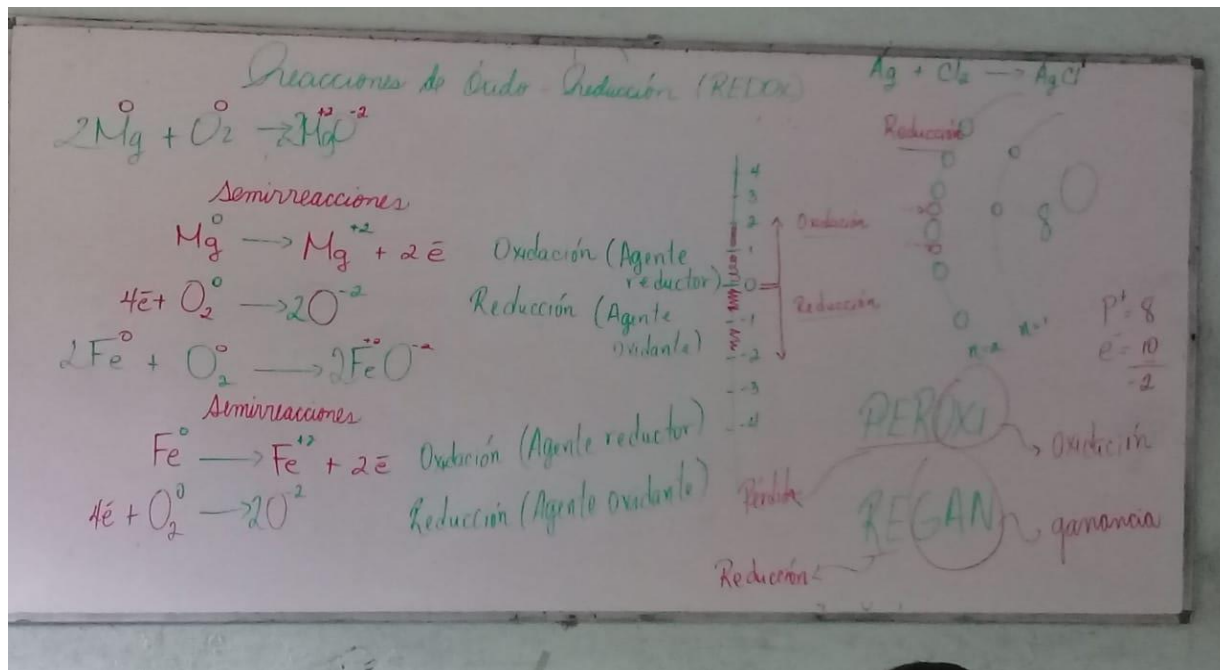 Reacciones de Óxido - Reducción (REDOX)
Ag + Cl₂ → AgCl
2Mg⁰ + O₂⁰ → 2Mg⁺²O⁻²
Semirreacciones
Mg⁰ → Mg⁺² + 2ē Oxidación (Agente
reductor)
4ē + O₂⁰ → 2O⁻² Reducción (Agente
oxidante)
2Fe⁰ + O₂⁰ → 2Fe⁺²O⁻²
Semirreacciones
Fe⁰ → Fe⁺² + 2ē Oxidación (Agente reductor)
4ē + O₂⁰ → 2O⁻² Reducción (Agente oxidante)
4
3
2
1
0
-1
-2
-3
-4
Oxidación
Reducción
Reducción
8
n=2 n=1
P⁺ = 8
e⁻ = 10
-2
PEROXI
Oxidación
Pérdida
REGAN
ganancia
Reducción